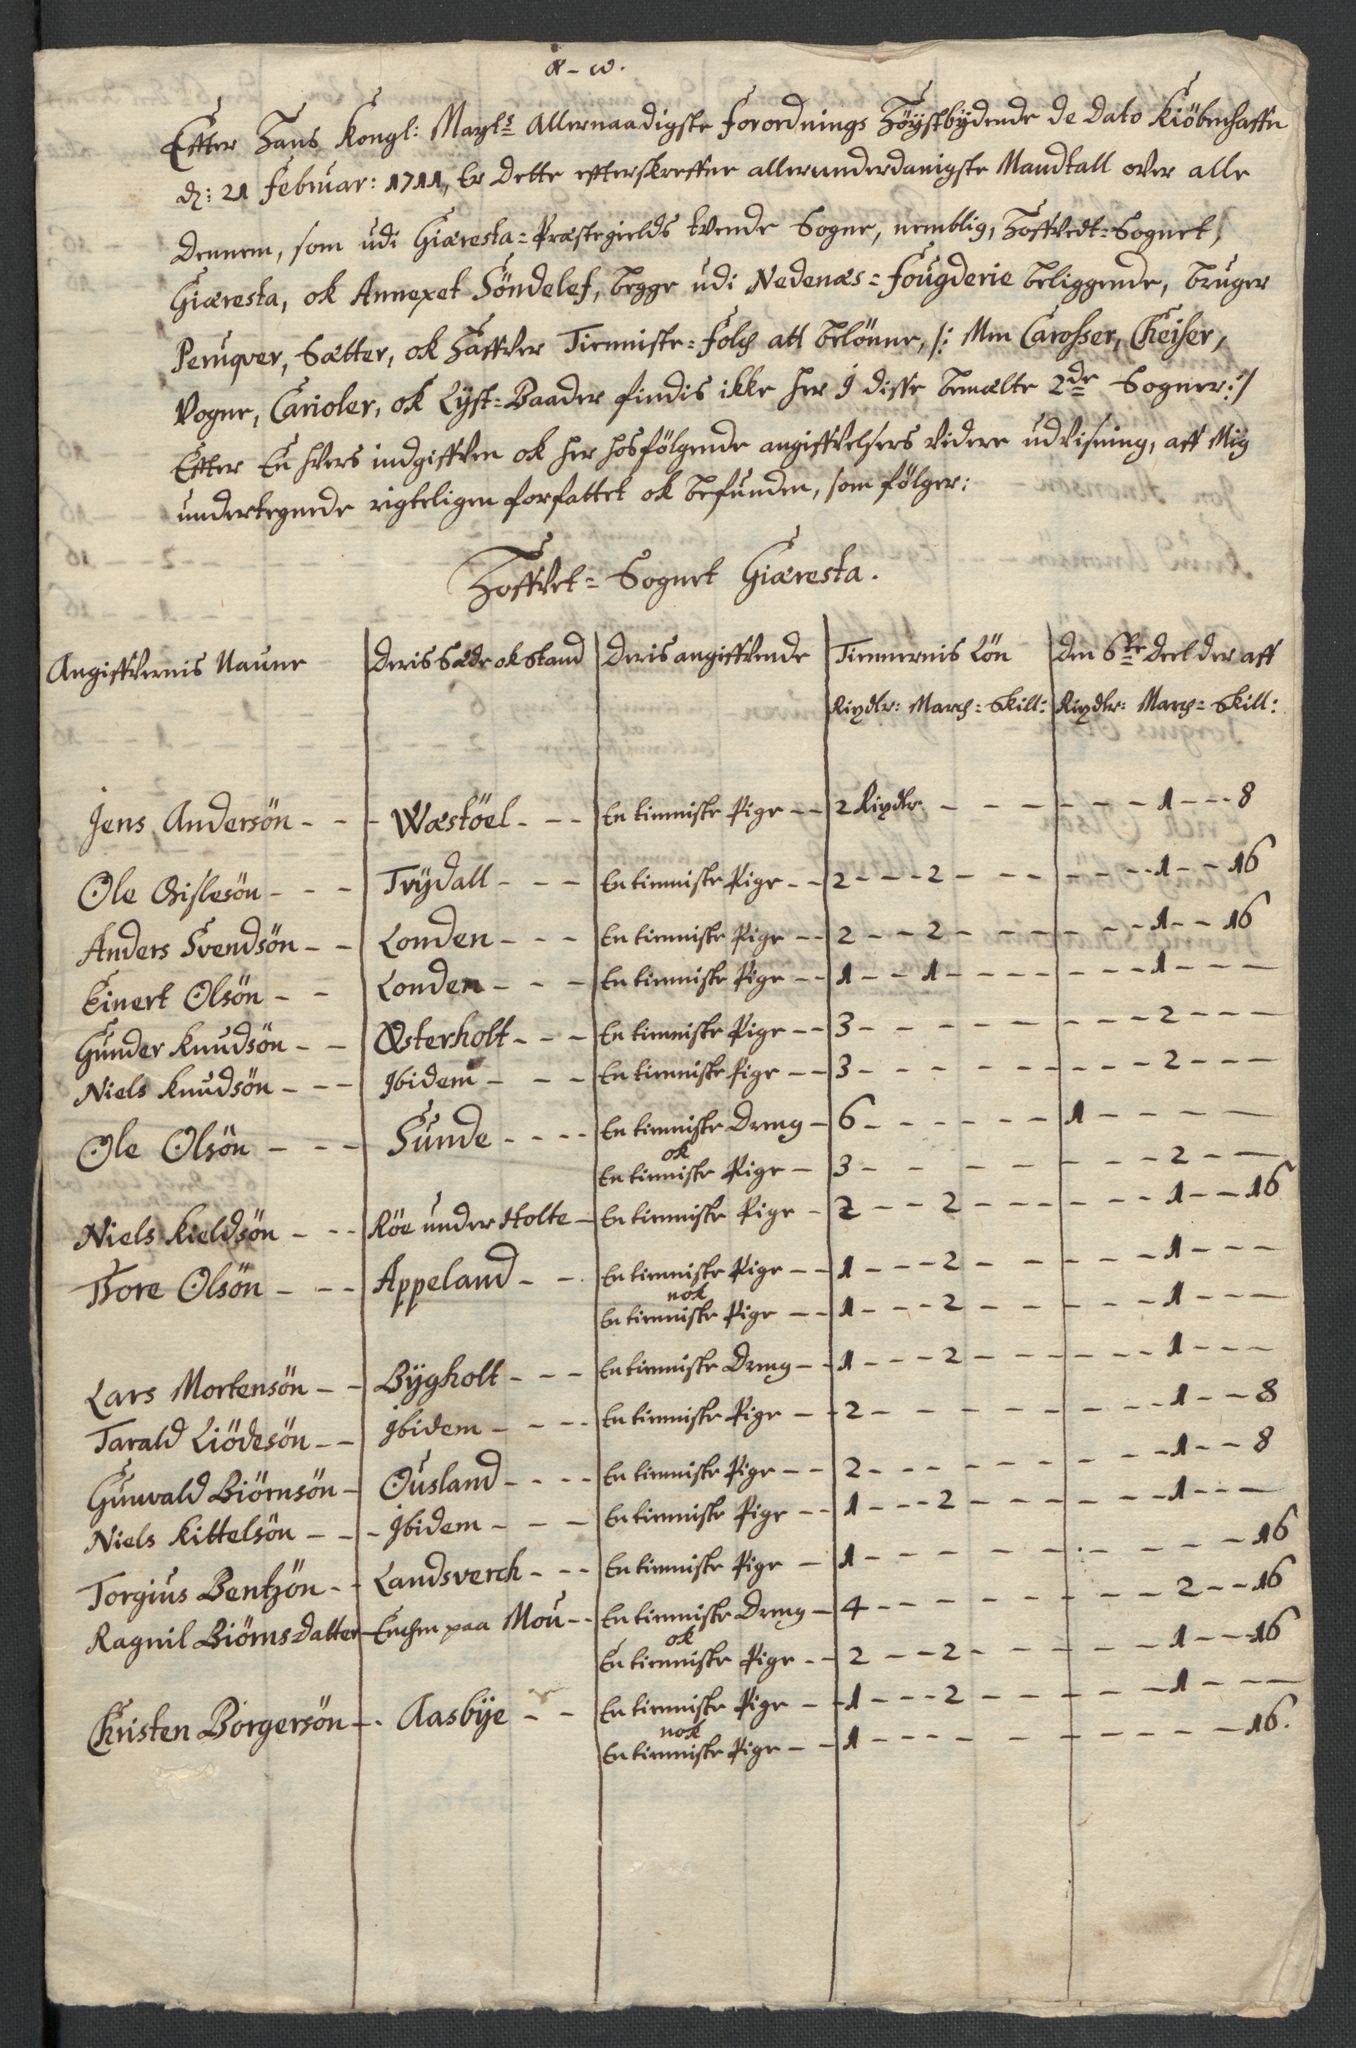 α – ω.
Efter Hans Kongl: Mayts Allernaadigste Forordnings Höystbÿdende de Dato Kiöbenhaffn
d: 21 Februar: 1711, Er Dette effterskreffne allerunderdanigste Mandtall over alle
Dennem, som udi Giæresta=Præstegields tvende Sogne, nemblig, Hoffvedt=Sognet,
Giæresta, ok Annexet Söndelef, begge udi Nedenæs=Fougderie beliggende, bruger
Peruqver, Sætter, ok Haffver Tienniste=Folch att belönne, /: Men Carosser, Cheiser,
Vogne, Carioler, ok Lÿst=Baader findis ikke her J disse bemælte 2de Sogner: /
Efter En hvers indgiffven ok her hosfölgende angiffvelsers videre udvisning, aff Mig
undertegnede rigteligen forfattet ok befunden, som fölger:
Hoffvet=Sognet Giæresta.
Angiffvernis Naune | Deris Sæde ok Stand | Deris angiffvende | Tiennernis Lön | Den 6te Deel der aff
Rixdlr: March= Skill: | Rixdlr: March= Skill:
Jens Andersön - - - Wæstöel - - - En tienniste Pige - - 2 Rixdlr - - - - - - 1 - - - 8
Ole Gislesön - - - Trÿdall - - - En tienniste Pige - - 2 - - - 2 - - - - - - 1 - - 16
Anders Svendsön - - Londen - - - En tienniste Pige - - 2 - - 2 - - - - - - 1 - - 16
Einert Olsön - - Londen - - - En tienniste Pige - - 1 - - 1 - - - - - - 1 - - -
Gunder Knudsön - - Østerholt - - - En tienniste Pige - - 3 - - - - - - - - 2 - - -
Niels Knudsön - - - Jbidem - - - En tienniste Pige - - 3 - - - - - - - - 2 - - -
Ole Olsön - - - Sunde - - - - En tienniste Dreng - 6 - - - - - - 1 - - - -
ok
En tienniste Pige - 3 - - - - - - 2 - -
Niels Kieldsön - - - Röe under Holte - En tienniste Pige - 2 - - 2 - - - - - - 1 - - 16
Tore Olsön - - - Appeland - - En tienniste Pige - - 1 - - - 2 - - - - - 1 - - -
nok
En tienniste Pige - - 1 - - - 2 - - - - - 1 - - -
Lars Mortensön - - Bÿgholt - - - En tienniste Dreng - - 1 - - - 2 - - - - - 1 - - -
Tarald Liödesön - - Jbidem - - - - En tienniste Pige - - 2 - - - - - - - - 1 - - 8
Gunvald Biörnsön - Ousland - - - - En tienniste Pige - - 2 - - - - - - - - 1 - - 8
Niels Kittelsön - - - Jbidem - - - En tienniste Pige - - 1 - - - 2 - - - - - - 1 - - -
Torgius Bentzön - - Landsverch - - - En tienniste Pige - 1 - - - - - - - - - - 16
Ragnil Biörnsdatter - Enchen paa Mou - - En tienniste Dreng - 4 - - - - - - - - 2 - - 16
ok
En tienniste Pige - - 2 - - 2 - - - - - - 1 - - 16
Christen Borgersön - - Aasbÿe - - En tienniste Pige - - 1 - - - 2 - - - - - 1 - - -
nok
En tienniste Pige - - 1 - - - - - - - - - - 16.